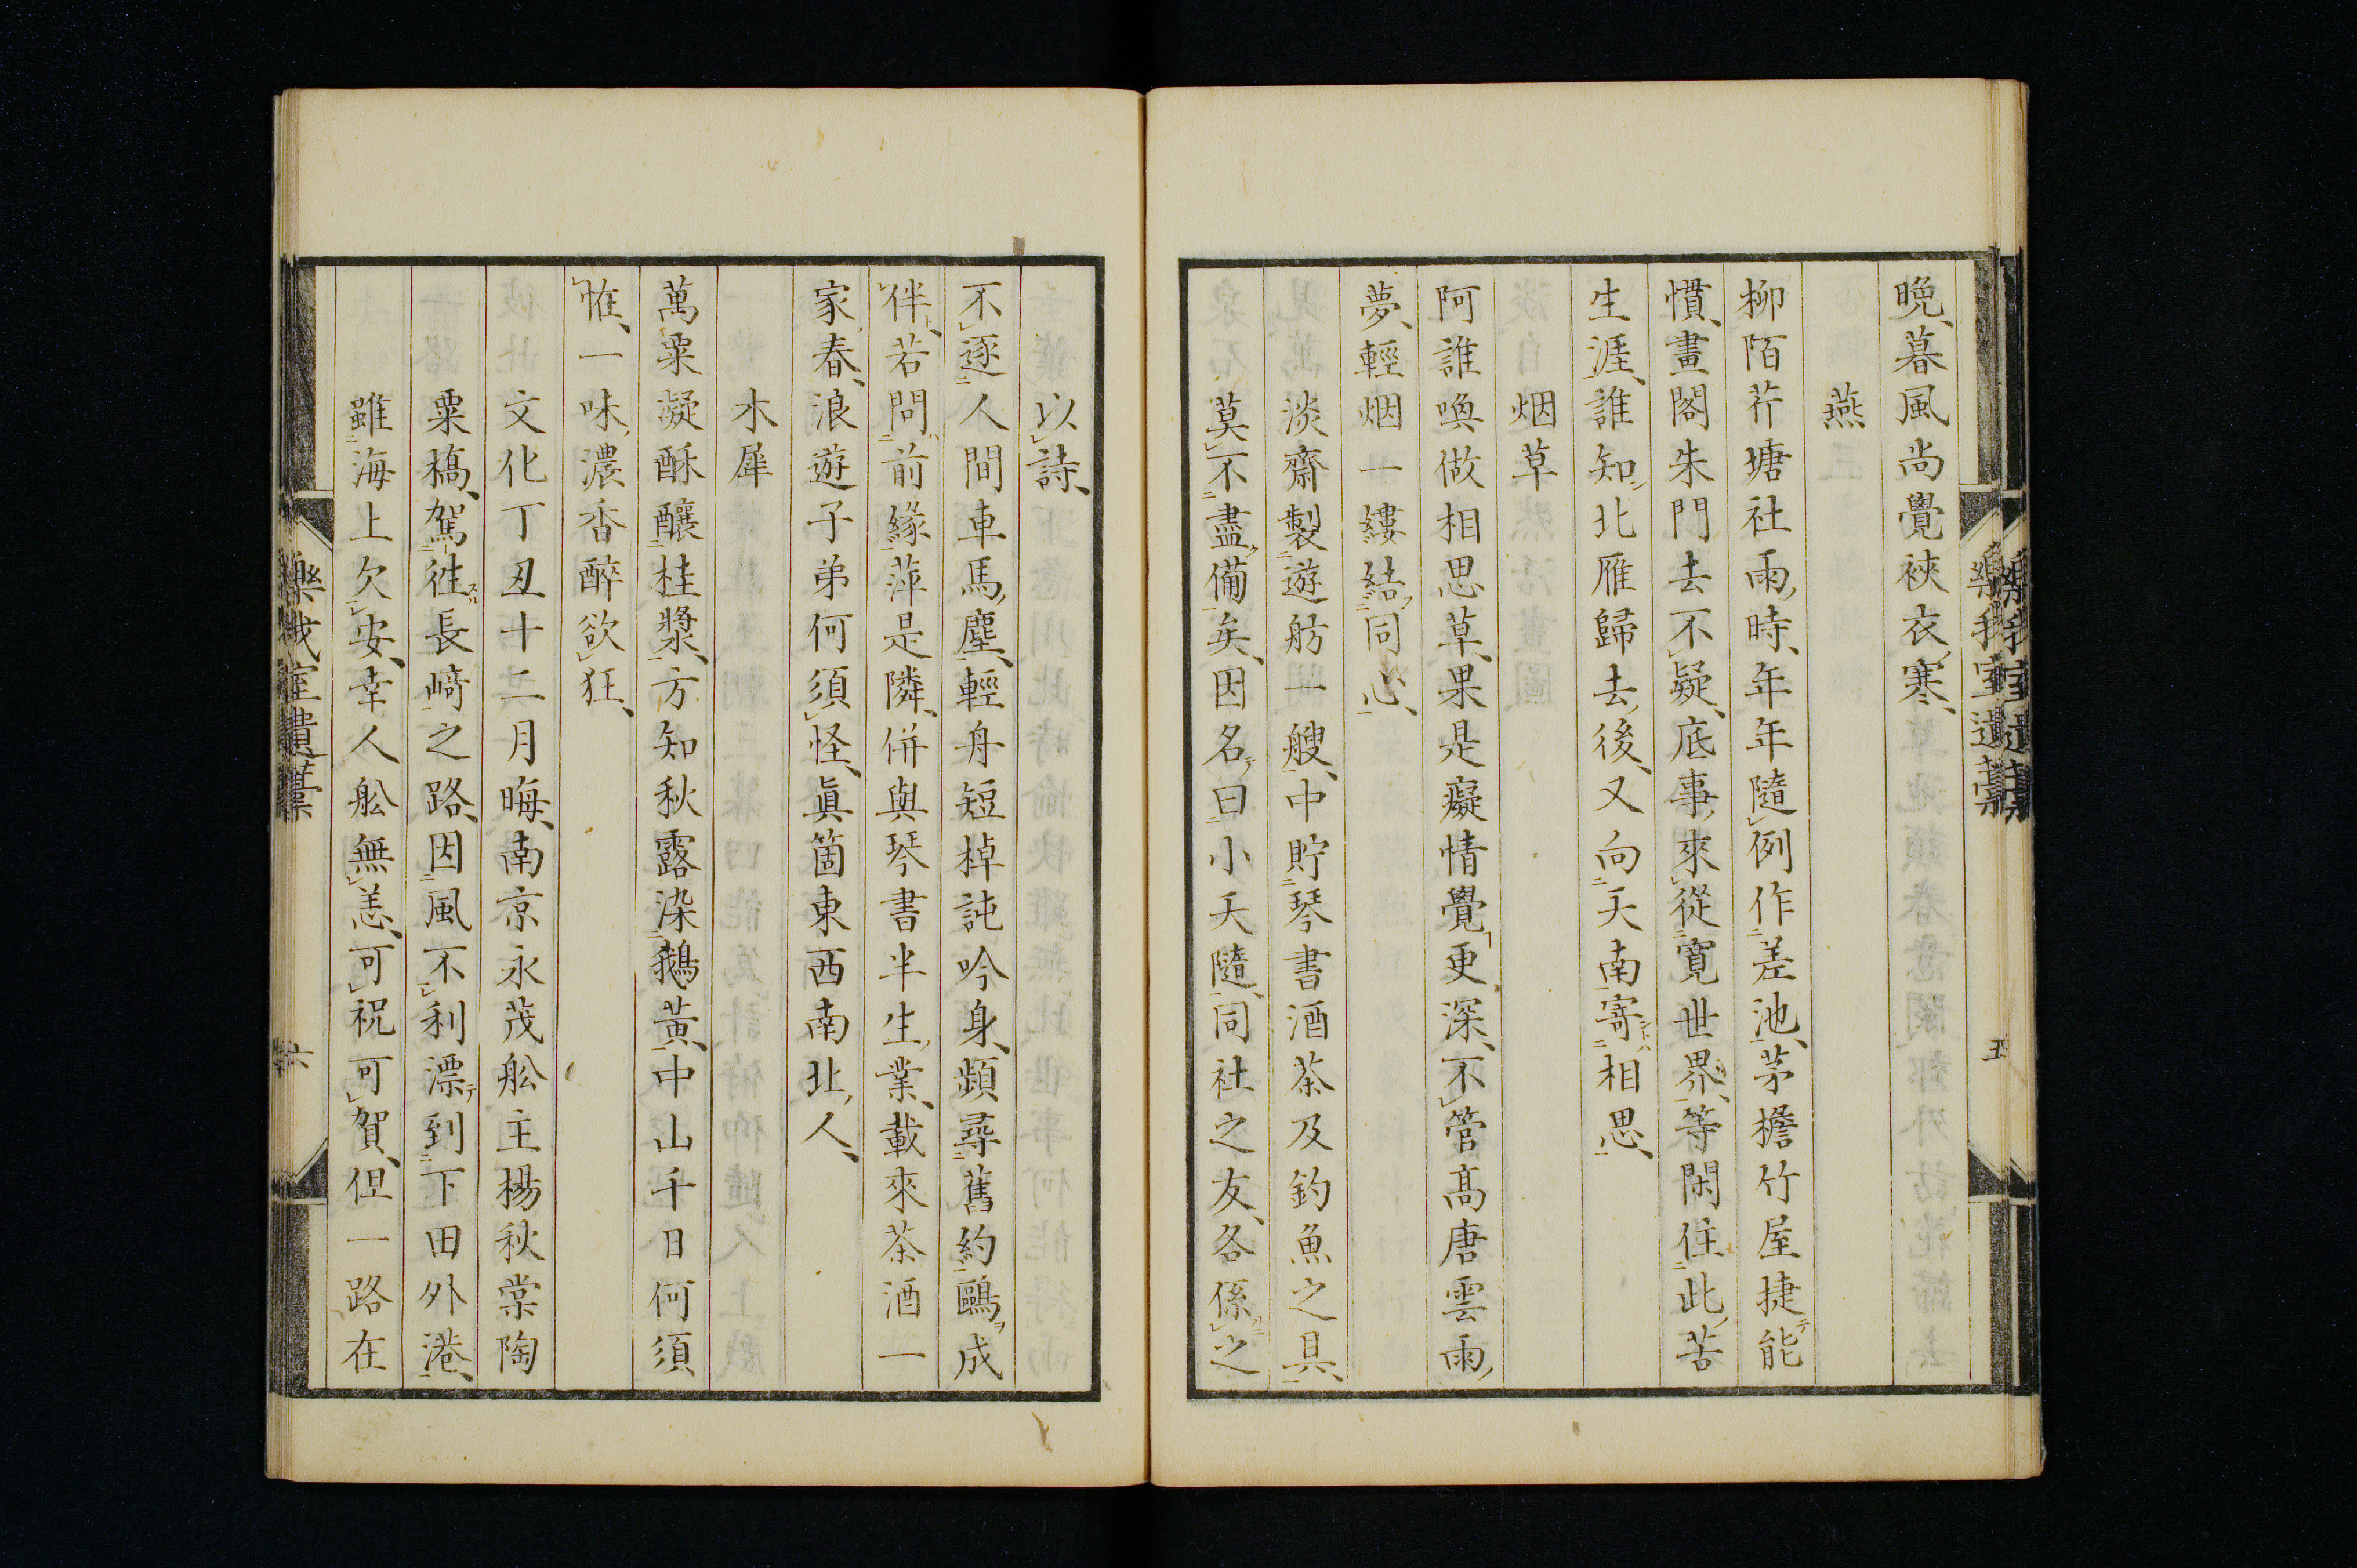 晩暮風尚覺裌衣寒
燕
柳陌芹塘社雨時年年隨例作差池茅檐竹屋捷能
慣畫閣朱門去不疑底事來從寬世界等閑住此苦
生涯誰知北雁歸去後又向天南寄相思
烟草
阿誰喚做相思草果是癡情覺更深不管高唐雲雨
夢輕烟一縷結同心
淡齋製遊舫一艘中貯琴書酒茶及釣魚之具
莫不盡備矣因名曰小天隨同社之友各係之
樂我室遺稾
五
以詩
不逐人間車馬塵輕舟短棹託吟身頻尋舊約鷗成
伴若問前緣萍是隣併與琴書半生業載來茶酒一
家春浪遊子弟何須怪眞箇東西南北人
木犀
萬粟凝酥釀桂漿方知秋露染鵝黃中山千日何須
恠一味濃香醉欲狂
文化丁丑十二月晦南京永茂舩主楊秋棠陶
粟橋駕往長﨑之路因風不利漂到下田外港
雖海上欠安幸人舩無恙可祝可賀但一路在
樂我室遺稾
六